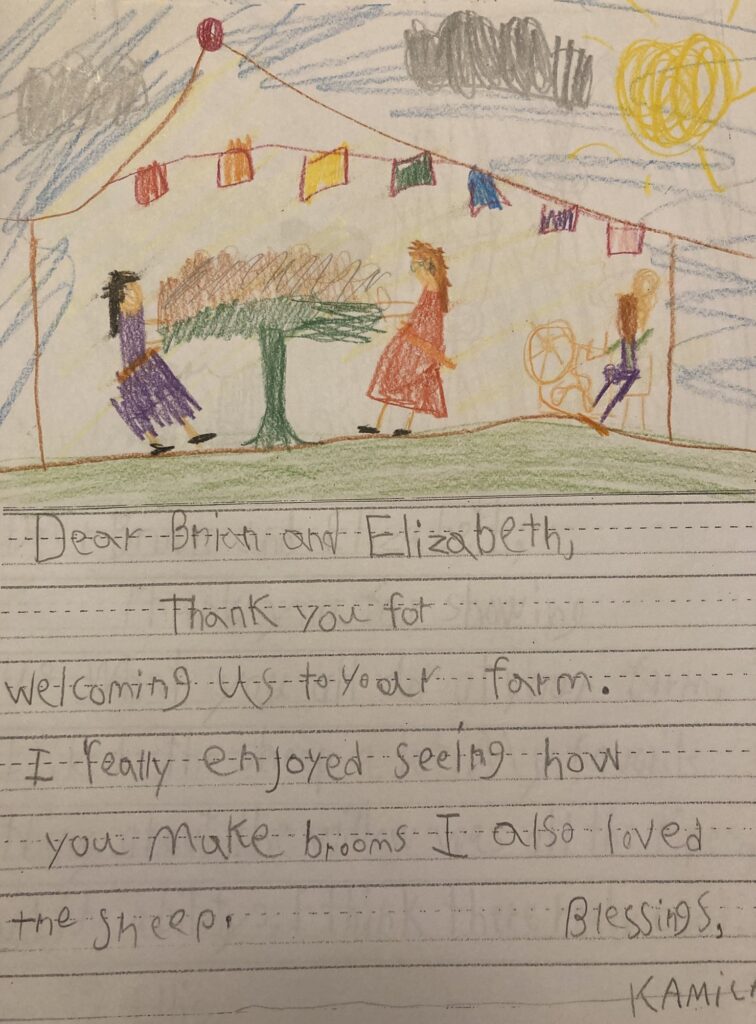 Dear Brian and Elizabeth,
Thank you for
welcoming us to your farm.
I really enjoyed seeing how
you make brooms I also loved
the sheep. Blessings,